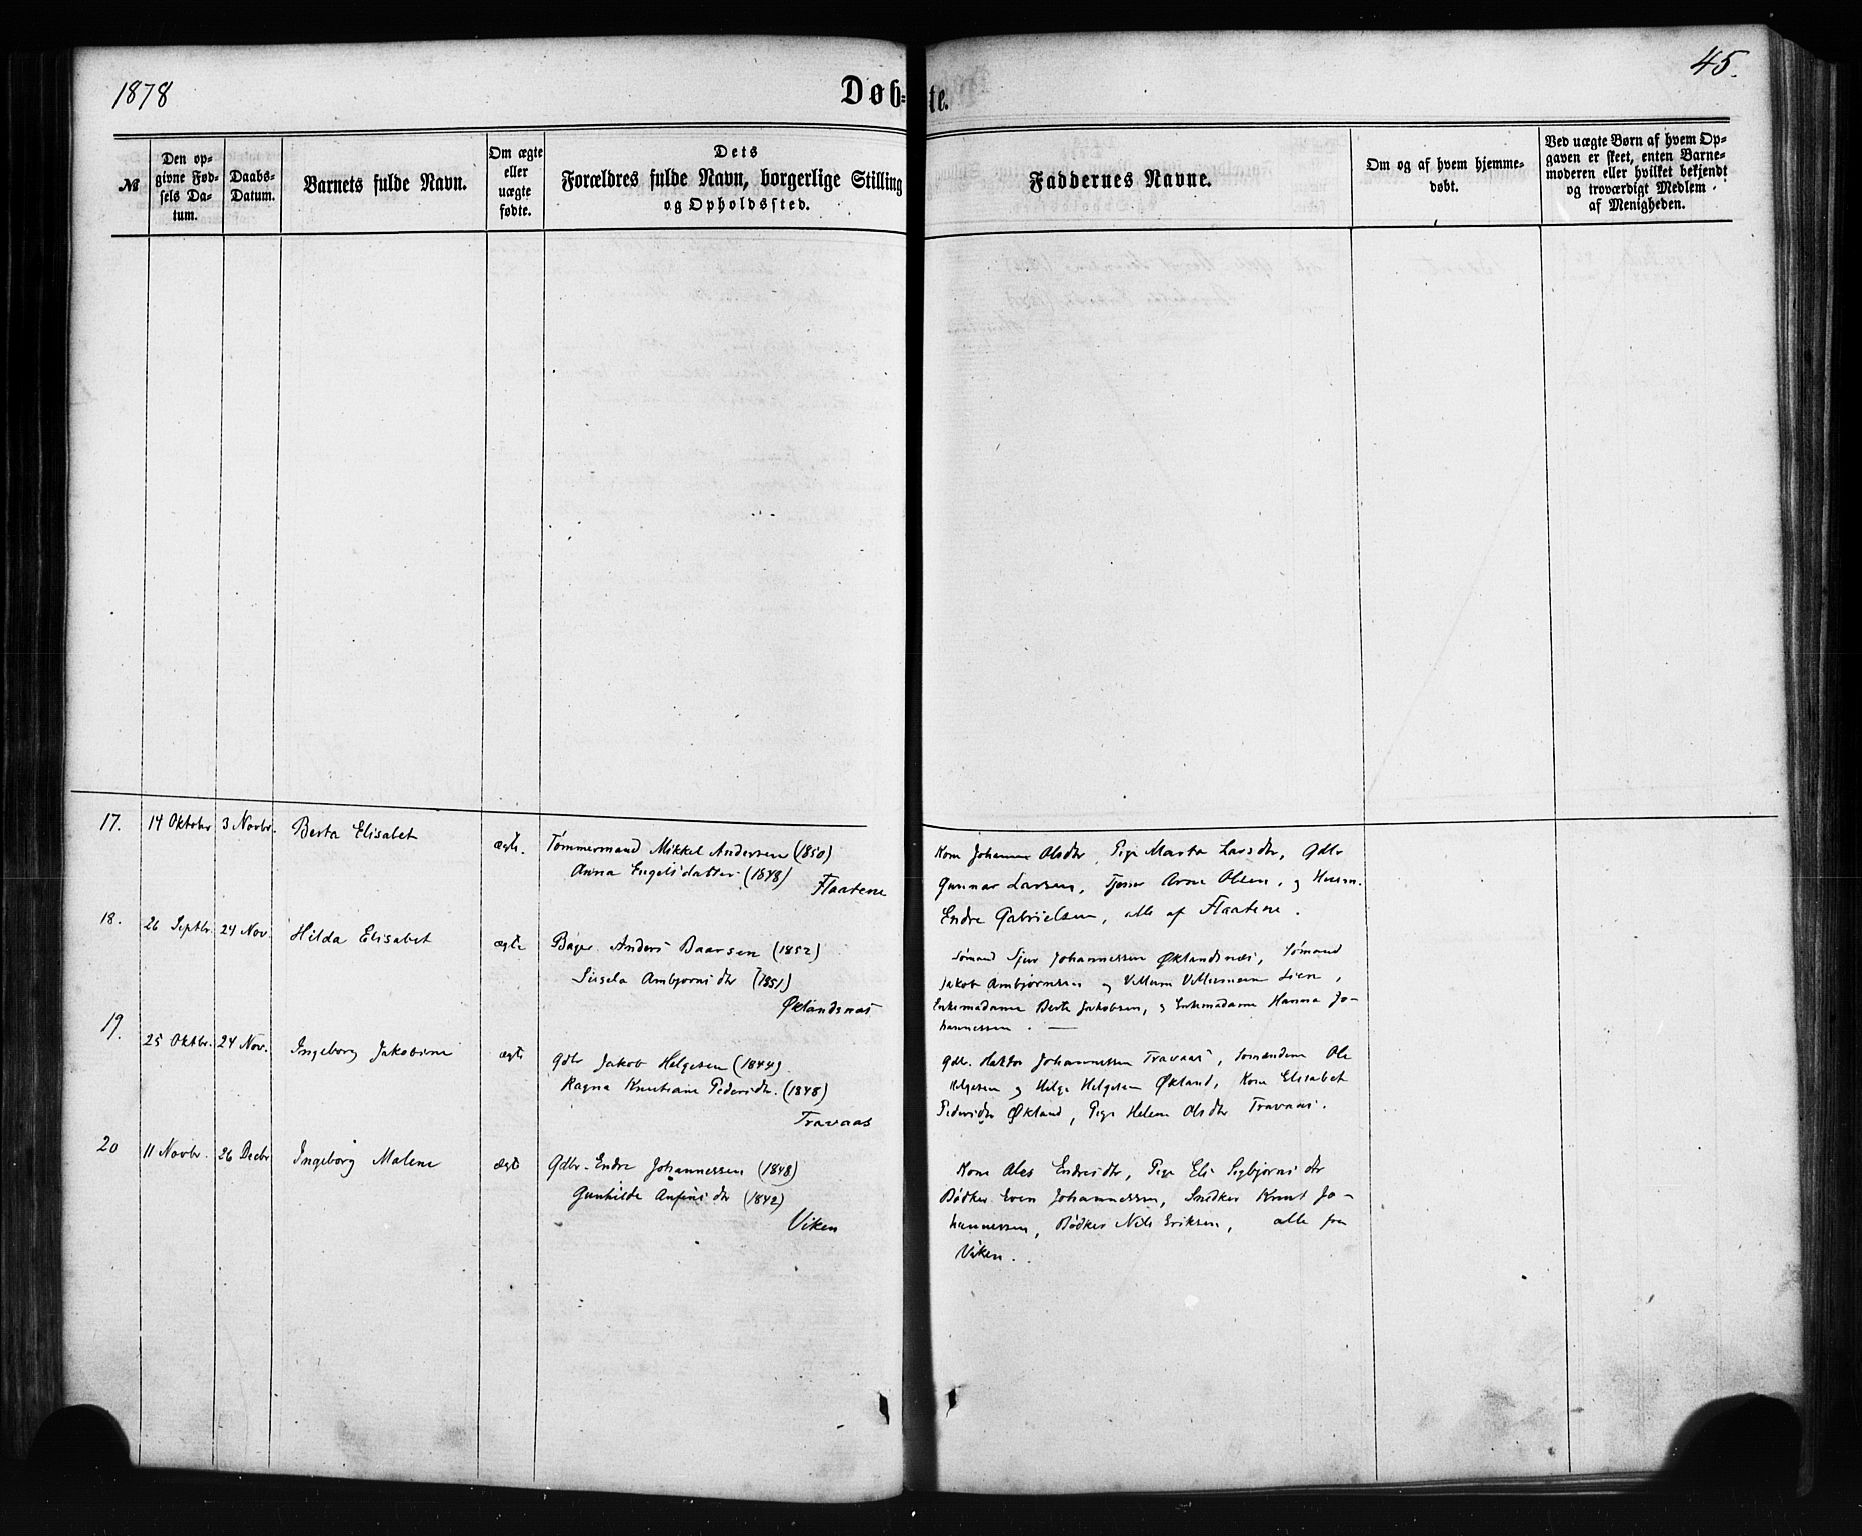 1878
Døb=te.
45.
№
Den op=
givne Fød=
sels Da=
tum.
Daabs=
Datum.
Barnets fulde Navn.
Om ægte
eller
uægte
fødte.
Dets
Forældres fulde Navn, borgerlige Stilling
og Opholdssted.
Faddernes Navne.
Om og af hvem hjemme=
døbt.
Ved uægte Børn af hvem Op=
gaven er skeet, enten Barne=
moderen eller hvilket bekjendt
og troværdigt Medlem
af Menigheden.
17. 14 Oktober 3 Novbr. Berta Elisabet ægte. Tømmermand Mikkel Andersen (1850)
Anna Engelsdatter (1848)
Flaatene
Kone Johanna Olsdtr, Pige Marta Larsdtr, Gdbr
Gunnar Larsen, Tjener Arne Olsen, og Husm.
Endre Gabrielsen, alle af Flaatene.
18. 26 Septbr. 24 Nov. Hilda Elisabet ægte Bager Anders Baarsen (1852)
Sisela Ambjørnsdtr (1851)
Øklandsnæs
Sømand Sjur Johannessen Øklandsnæs, Sømand
Jakob Ambjørnsen og Villum Villumsen Lien,
Enkemadame Berte Jakobsen, og Enkemadame Hanna Jo-
hannessen.
19. 25 Oktbr. 24 Nov. Ingeborg Jakobine ægte Gdbr Jakob Helgesen (1844)
Ragna Knutsane Pedersdtr. (1848)
Travaas
Gdbr. Haktor Johannessen Travaas, Sømændene Ole
Helgesen og Helge Helgesen Økland, Kone Elisabet
Pedersdtr Økland, Pige Helene Olsdtr Travaas.
20 11 Novbr. 26 Decbr Ingeborg Malene ægte Gdbr. Endre Johannessen (1848)
Gunhilde Anfinsdtr (1842)
Viken
Kone Ales Endresdtr, Pige Eli Sigbjørnsdtr
Bødker Even Johannessen, Snedker Knut Jo-
hannessen, Bødker Nils Eriksen, alle fra
Viken.